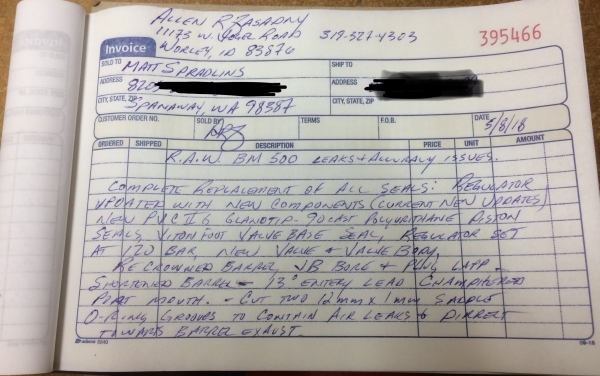 ALLEN R ZASADNY
11173 W. YOUR ROAD 319-527-4303
WORLEY, ID 83876
395466
Invoice
SOLD TO MATT SPRADLINS SHIP TO
ADDRESS 820 ADDRESS
CITY, STATE, ZIP SPANAWAY, WA 98387 CITY, STATE, ZIP
CUSTOMER ORDER NO. SOLD BY TERMS F.O.B. DATE 5/8/18
ORDERED SHIPPED DESCRIPTION PRICE UNIT AMOUNT
R.A.W. BM 500 LEAKS & ACCURACY ISSUES.
COMPLETE REPLACEMENT OF ALL SEALS: REGULATOR
UPDATED WITH NEW COMPONENTS (CURRENT NEW UPDATES)
NEW GLANDTIP - 90 CAST POLYURETHANE PISTON
SEALS, VITON FOOT VALVE BASE SEAL, REGULATOR SET
AT 120 BAR, NEW VALVE & VALVE BODY,
RE CROWNED BARREL, JB BORE & PLUG LAPP -
SHORTENED BARREL - 13° ENTERY LEAD CHAMPHERED
PORT MOUTH. - CUT TWO 12mm x 1mm SADDLE
O-RING GROOVES TO CONTAIN AIR LEAKS & DIRRECT
TOWARDS BARREL EXAUST.
adams